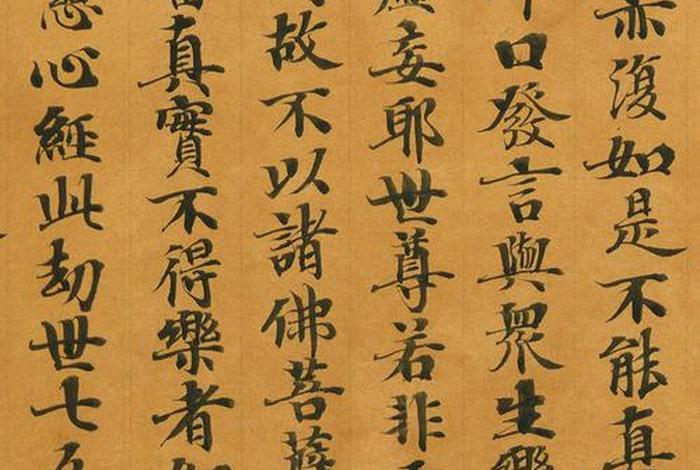 亦復如是不能真
口發言與眾生樂
虛妄耶世尊若非
故不以諸佛菩薩
真實不得樂者
慈心經此劫世七